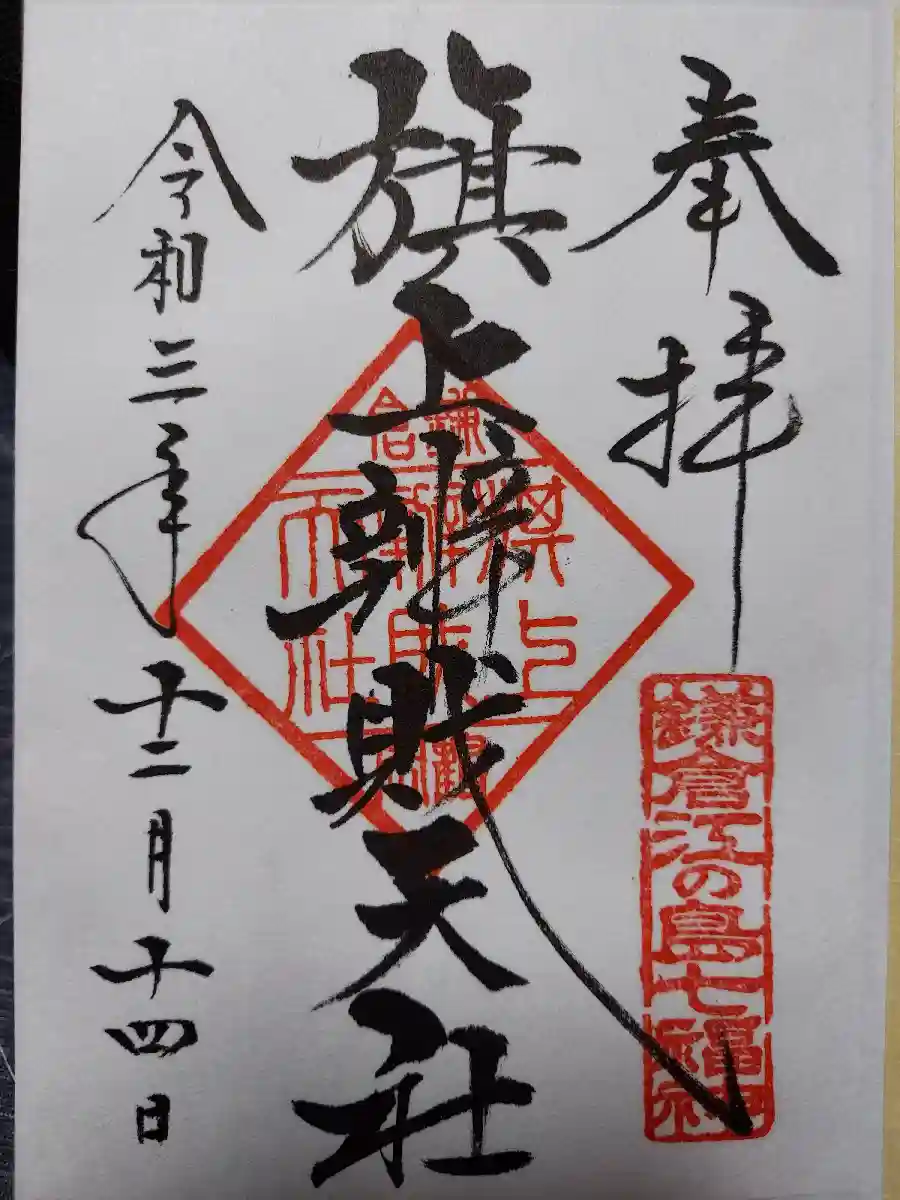 奉拝
鎌倉江の島七福神
旗上辨財天社
鎌倉
旗上
辨財
天社
令和三年十二月十四日